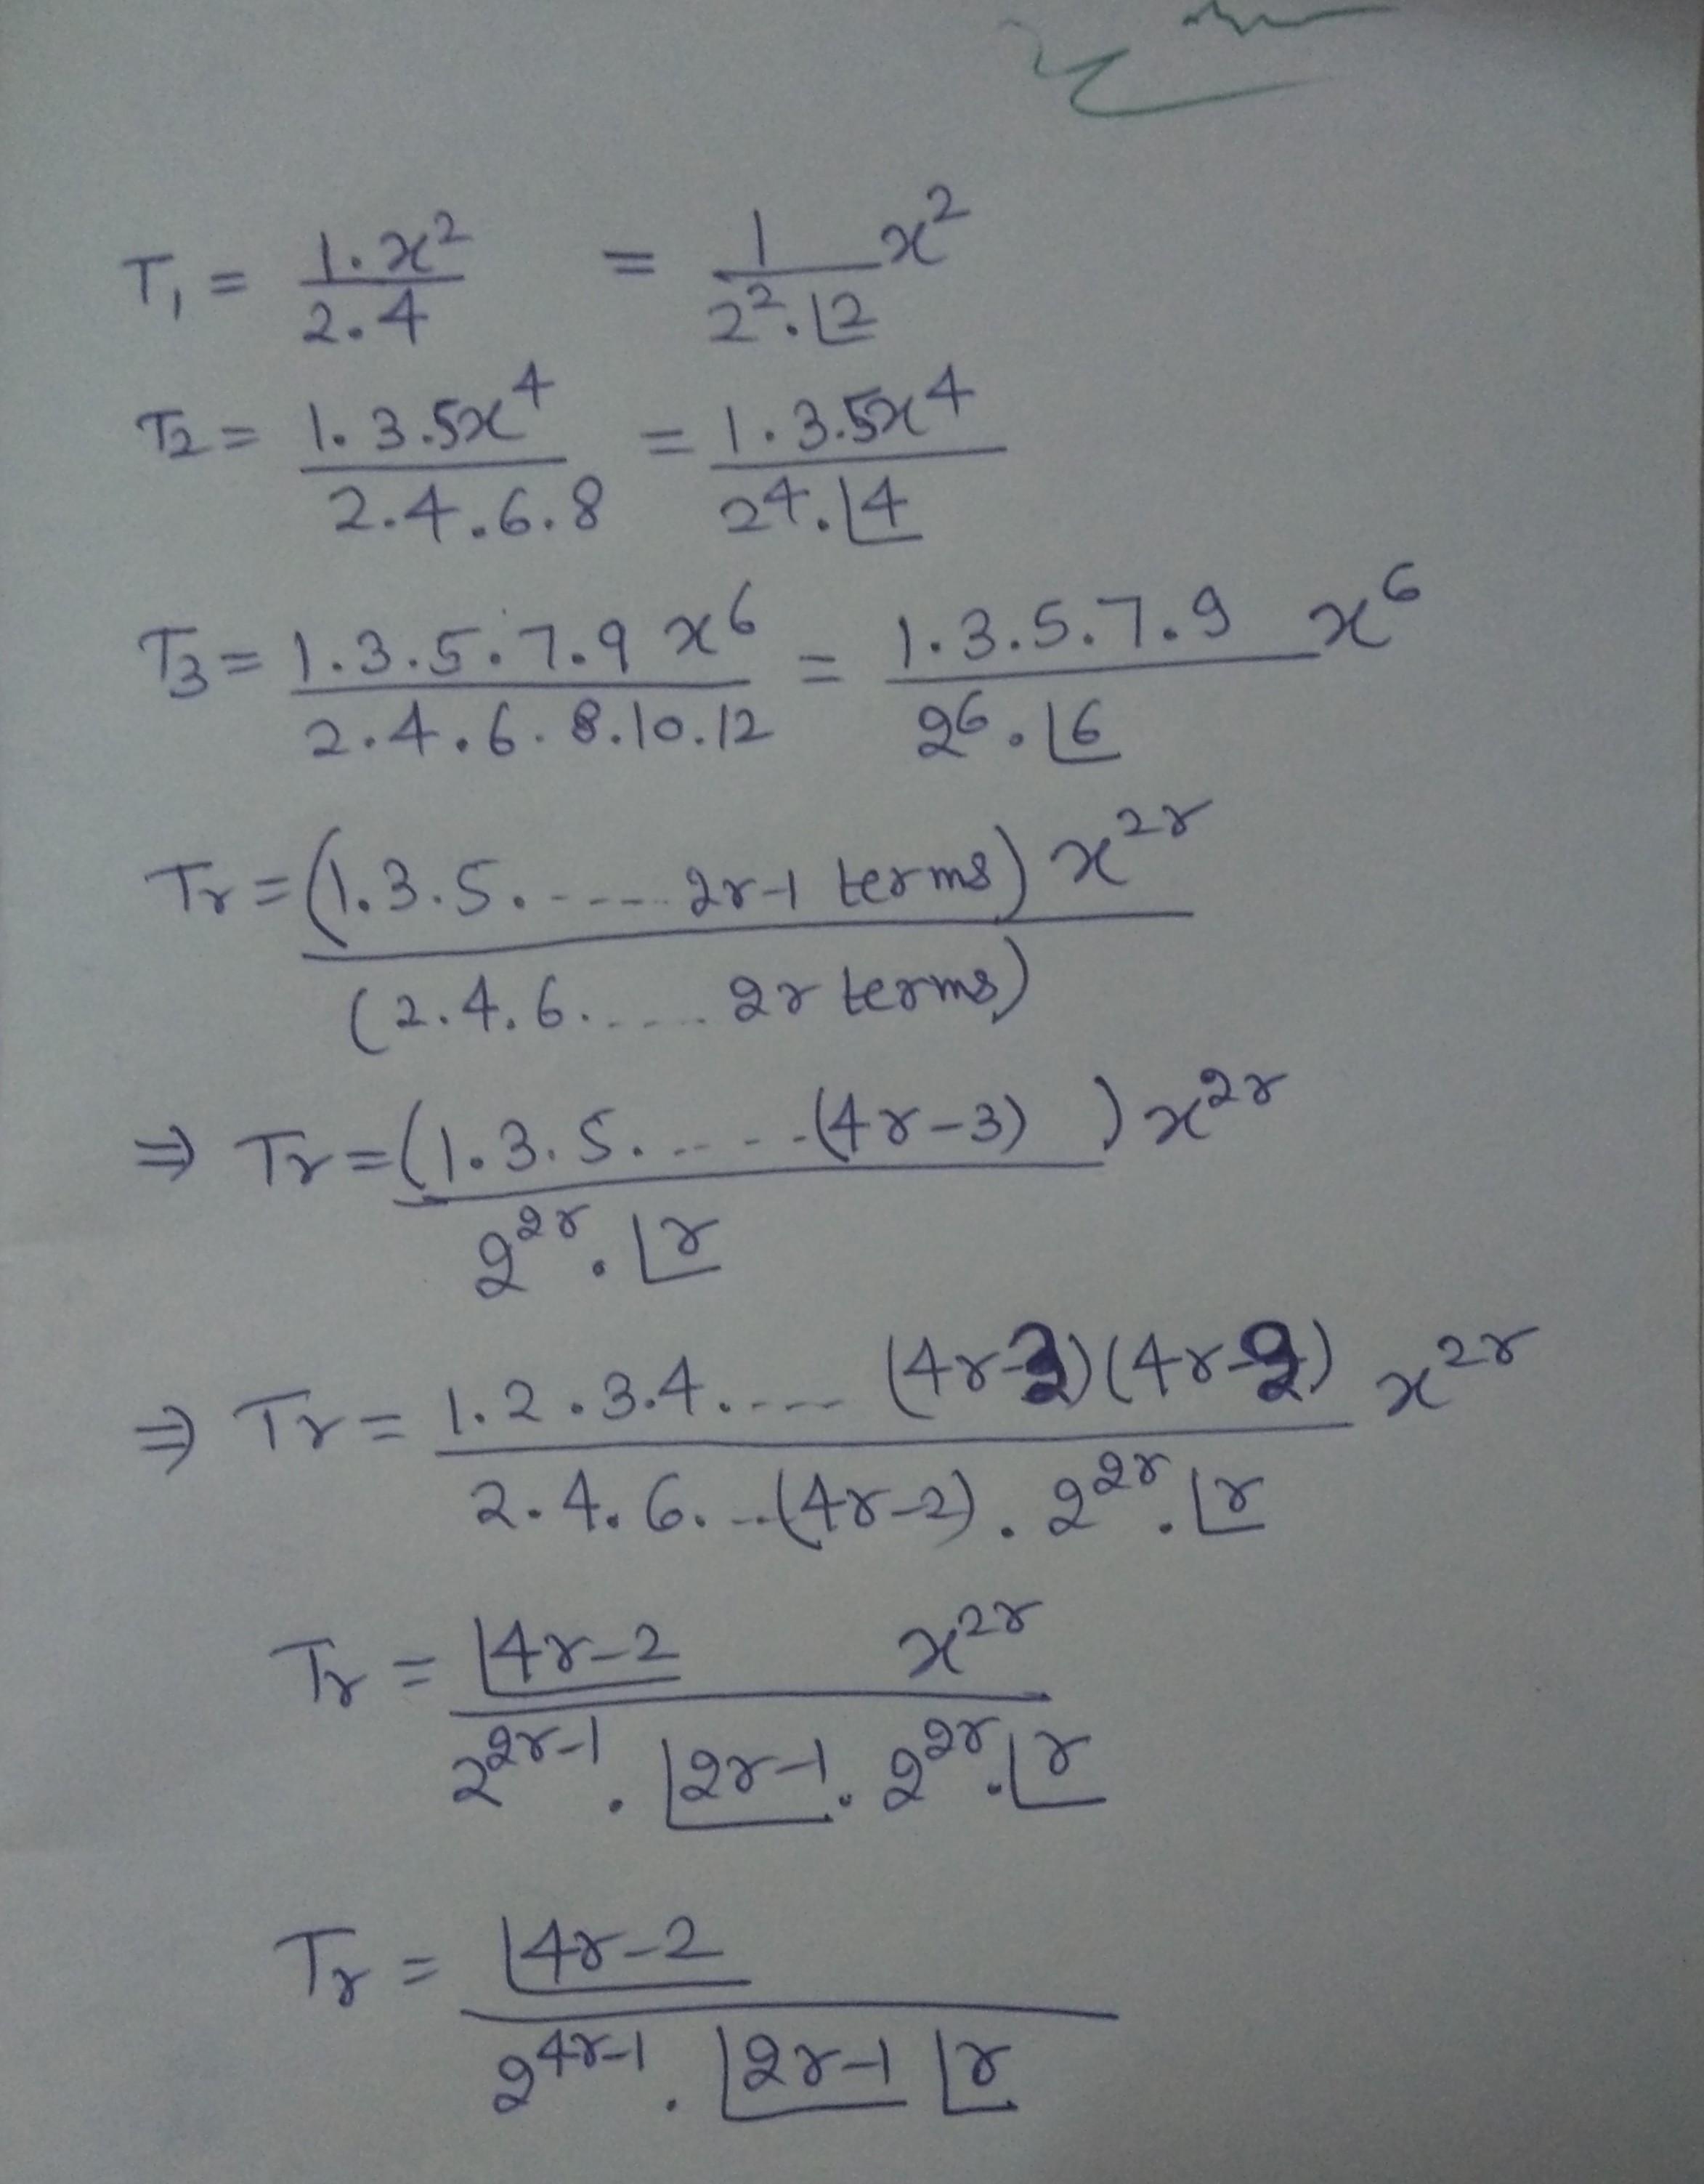 T₁ = 1.x²/2.4 = 1/2².⌊2 x²
T2 = 1.3.5x⁴/2.4.6.8 = 1.3.5x⁴/2⁴.⌊4
T3 = 1.3.5.7.9 x⁶/2.4.6.8.10.12 = 1.3.5.7.9/2⁶.⌊6 x⁶
Tr = (1.3.5.----- 2r-1 terms) x^2r/(2.4.6..... 2r terms)
⇒ Tr = (1.3.5.-----(4r-3) ) x^2r/2^2r.⌊r
⇒ Tr = 1.2.3.4.---- (4r-3)(4r-2)/2.4.6...(4r-2).2^2r.⌊r x^2r
Tr = ⌊4r-2 x^2r/2^2r-1.⌊2r-1.2^2r.⌊r
Tr = ⌊4r-2/2^4r-1.⌊2r-1 ⌊r